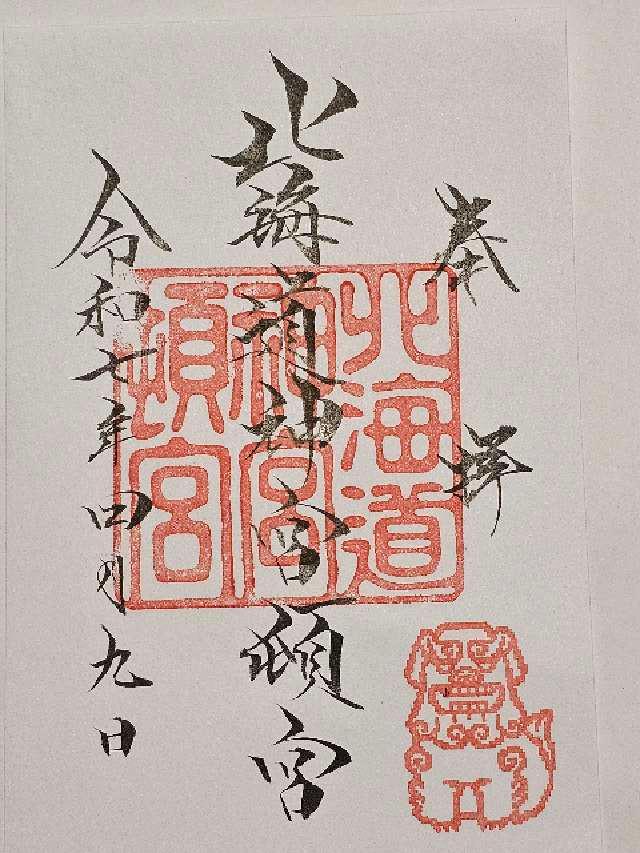 奉拝
北海道神宮頓宮
北海道
神宮
頓宮
令和七年四月九日